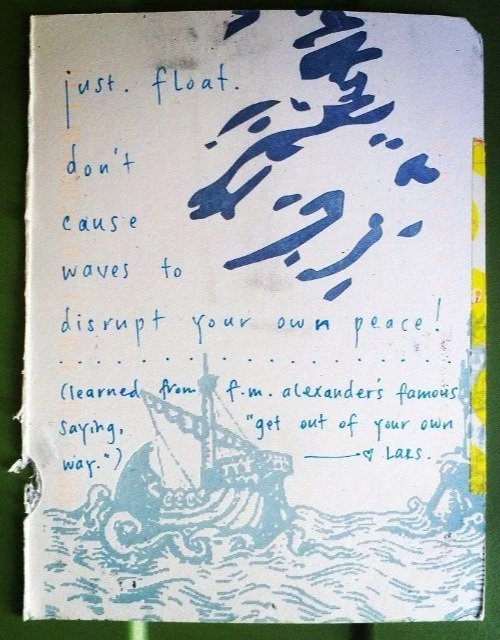 just. float.
don't
cause
waves to
disrupt your own peace!
(learned from f.m. alexander's famous
saying, "get out of your own
way.") → ♡ Lars.